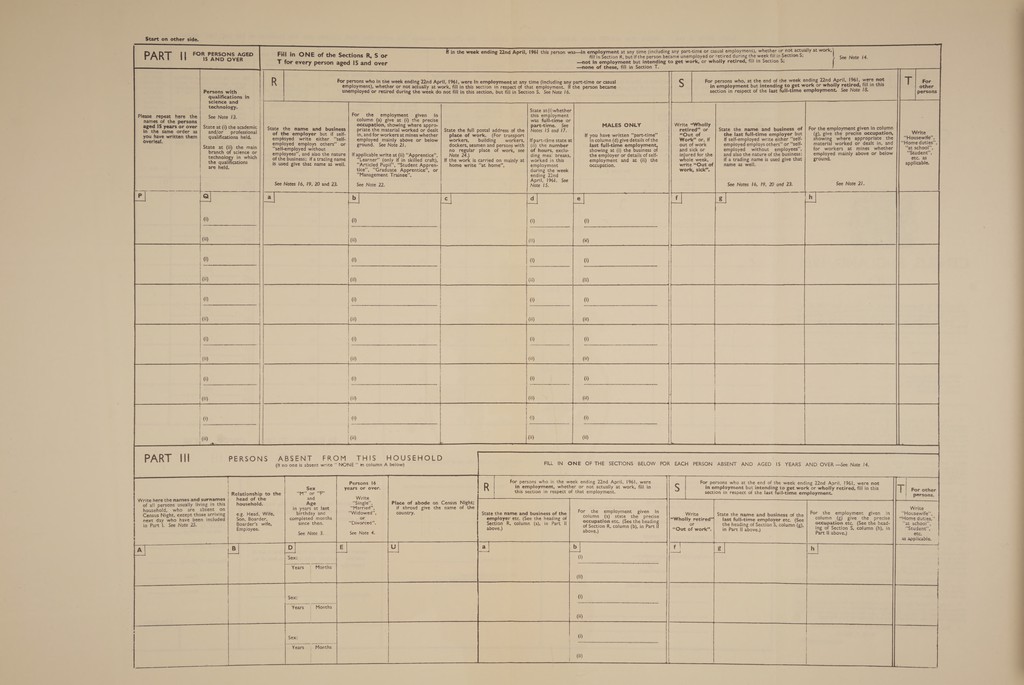 Start on other side.
PART II
FOR PERSONS AGED
15 AND OVER
Fill in ONE of the Sections R, S or
T for every person aged 15 and over
If in the week ending 22nd April, 1961 this person was—in employment at any time (including any part-time or casual employment), whether or not actually at work,
fill in Section R, but if the person became unemployed or retired during the week fill in Section S.
—not in employment but intending to get work, or wholly retired, fill in Section S.
—none of these, fill in Section T.
See Note 14.
Please repeat here the
names of the persons
aged 15 years or over
in the same order as
you have written them
overleaf.
Persons with
qualifications in
science and
technology.
See Note 15.
State at (i) the academic
and/or professional
qualifications held.
State at (ii) the main
branch of science or
technology in which
the qualifications
are held.
R
For persons who in the week ending 22nd April, 1961, were in employment at any time (including any part-time or casual
employment), whether or not actually at work, fill in this section in respect of that employment. If the person became
unemployed or retired during the week do not fill in this section, but fill in Section S. See Note 16.
State the name and business
of the employer but if self-
employed write either "self-
employed employs others" or
"self-employed without
employees", and also the nature
of the business; if a trading name
is used give that name as well.
See Notes 16, 19, 20 and 23.
For the employment given in
column (a) give at (i) the precise
occupation, showing where appro-
priate the material worked or dealt
in, and for workers at mines whether
employed mainly above or below
ground. See Note 21.
If applicable write at (ii) "Apprentice",
"Learner" (only if in skilled craft),
"Articled Pupil", "Student Appren-
tice", "Graduate Apprentice", or
"Management Trainee".
See Note 22.
State the full postal address of the
place of work. (For transport
workers, building workers,
dockers, seamen and persons with
no regular place of work, see
Note 24.)
If the work is carried on mainly at
home write "at home".
State at (i) whether
this employment
was full-time or
part-time. See
Notes 15 and 17.
If part-time state at
(ii) the number
of hours, exclu-
ding meal breaks,
worked in this
employment
during the week
ending 22nd
April, 1961. See
Note 15.
MALES ONLY
If you have written "part-time"
in column (d) give details of the
last full-time employment,
showing at (i) the business of
the employer or details of self-
employment and at (ii) the
occupation.
S
For persons who, at the end of the week ending 22nd April, 1961, were not
in employment but intending to get work or wholly retired, fill in this
section in respect of the last full-time employment. See Note 18.
Write "Wholly
retired" or
"Out of
Work" or, if
out of work
and sick or
injured for the
whole week,
write "Out of
work, sick".
State the name and business of
the last full-time employer but
if self-employed write either "self-
employed employs others" or "self-
employed without employees",
and also the nature of the business;
if a trading name is used give that
name as well.
See Notes 16, 19, 20 and 23.
For the employment given in column
(g), give the precise occupation,
showing where appropriate the
material worked or dealt in, and
for workers at mines whether
employed mainly above or below
ground.
See Note 21.
T
For
other
persons
Write
"Housewife",
"Home duties",
"at school",
"Student",
etc. as
applicable.
P Q a b c d e f g h
(i) (i) (i) (i)
(ii) (ii) (ii) (ii)
(i) (i) (i) (i)
(ii) (ii) (ii) (ii)
(i) (i) (i) (i)
(ii) (ii) (ii) (ii)
(i) (i) (i) (i)
(ii) (ii) (ii) (ii)
(i) (i) (i) (i)
(ii) (ii) (ii) (ii)
(i) (i) (i) (i)
(ii) (ii) (ii) (ii)
PART III
PERSONS ABSENT FROM THIS HOUSEHOLD
(If no one is absent write "NONE" in column A below)
FILL IN ONE OF THE SECTIONS BELOW FOR EACH PERSON ABSENT AND AGED 15 YEARS AND OVER—See Note 14.
Write here the names and surnames
of all persons usually living in this
household, who are absent on
Census Night, except those arriving
next day who have been included
in Part I. See Note 25.
Relationship to the
head of the
household.
e.g. Head, Wife,
Son, Boarder,
Boarder's wife,
Employee.
Sex
"M" or "F"
and
Age
in years at last
birthday and
completed months
since then.
See Note 3.
Persons 15
years or over.
Write
"Single",
"Married",
"Widowed",
or
"Divorced".
See Note 4.
Place of abode on Census Night;
if abroad give the name of the
country.
R
For persons who in the week ending 22nd April, 1961, were
in employment, whether or not actually at work, fill in
this section in respect of that employment.
State the name and business of the
employer etc. (See the heading of
Section R, column (a), in Part II
above.)
For the employment given in
column (a) state the precise
occupation etc. (See the heading
of Section R, column (b), in Part II
above.)
S
For persons who, at the end of the week ending 22nd April, 1961, were not
in employment but intending to get work or wholly retired, fill in this
section in respect of the last full-time employment.
Write
"Wholly retired"
or
"Out of work".
State the name and business of the
last full-time employer etc. (See
the heading of Section S, column (g),
in Part II above.)
For the employment given in
column (g) give the precise
occupation etc. (See the head-
ing of Section S, column (h), in
Part II above.)
T
For other
persons.
Write
"Housewife",
"Home duties",
"at school",
"Student",
etc.
as applicable.
A B D E U a b f g h
Sex: (i)
Years Months
(ii)
Sex: (i)
Years Months
(ii)
Sex: (i)
Years Months
(ii)